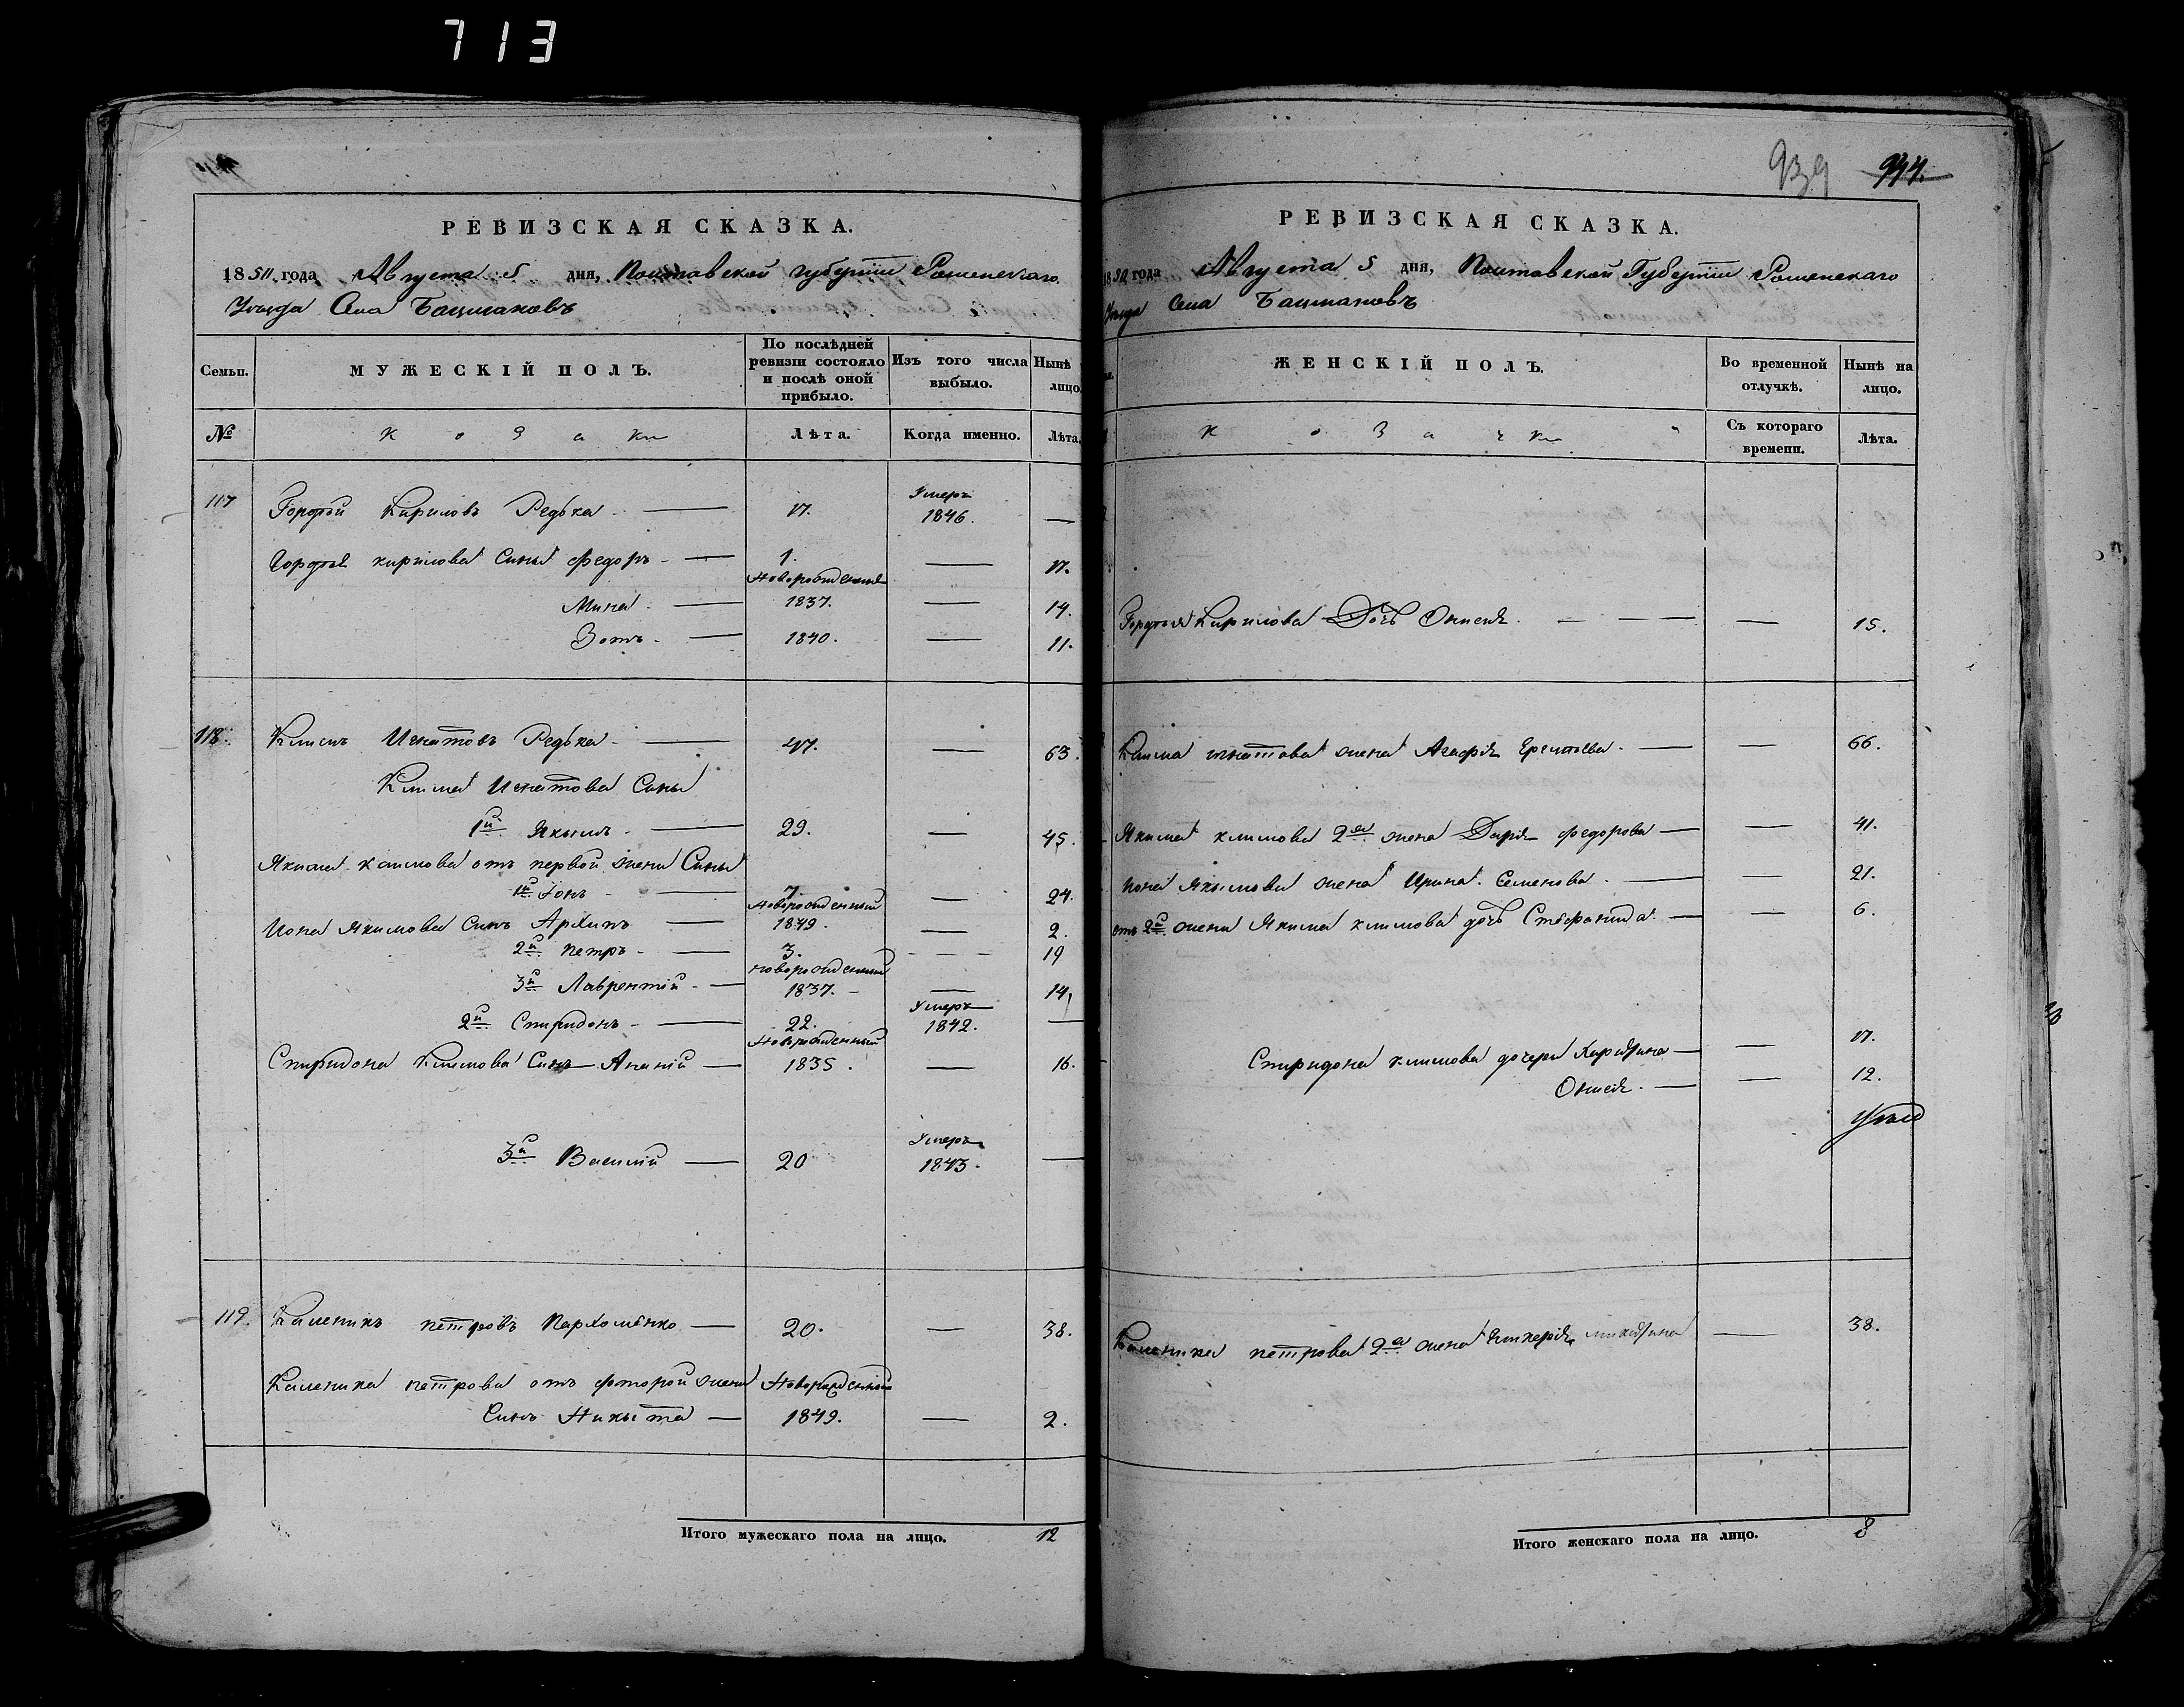 713
РЕВИЗСКАЯ СКАЗКА.
1850 года Августа 5 дня, Полтавской губерніи Роменскаго
Уезда Села Бацмановъ
Семьи.
МУЖЕСКІЙ ПОЛЪ.
По послѣдней ревизіи состояло и послѣ оной прибыло.
Изъ того числа выбыло.
Нынѣ лицо
№
Козаки
Лѣта.
Когда именно.
Лѣта.
117 Гордѣй Кириловъ Редька 17. Умеръ 1846.
Гордѣя Кирилова Сины Федоръ 1. 17.
Новорожденные
Мина 1837. 14.
Зотъ 1840. 11.
118. Климъ Игнатовъ Редька 47. 63.
Клима Игнатова Сины
1й Якимъ 29. 45.
Якима Климова отъ первой жени Сины
1й Іонъ 7. 24.
Новорожденный
Иона Якимова Синъ Архипъ 1849. 2.
2й Петръ 3. 19
Новорожденный
3й Лаврентій 1837. 14,
2й Спиридонъ 22. Умеръ 1842.
Новорожденный
Спиридона Климова Синъ Ананій 1835. 16.
3й Василій 20 Умеръ 1843.
119. Каленикъ Петровъ Пархоменко 20. 38.
Каленика Петрова отъ фторой жени Новорожденный
Синъ Никыта 1849. 2.
Итого мужескаго пола на лицо. 12
939 944.
РЕВИЗСКАЯ СКАЗКА.
1850 года Августа 5 дня, Полтавской Губерніи Роменскаго
Уезда Села Бацмановъ
ЖЕНСКІЙ ПОЛЪ.
Во временной отлучкѣ.
Нынѣ на лицо.
Козачки
Съ котораго времени.
Лѣта.
Гордѣя Кирилова Дочь 15.
Клима Игнатова жена Агафія 66.
Якима Климова 2я жена Дарія Федорова 41.
Иона Якымова жена Ирина Семенова 21.
отъ 2й жени Якима Климова дочь Стефанида 6.
Спиридона Климова дочери 17.
12.
Каленика Петрова 2я жена 38.
Итого женскаго пола на лицо. 8